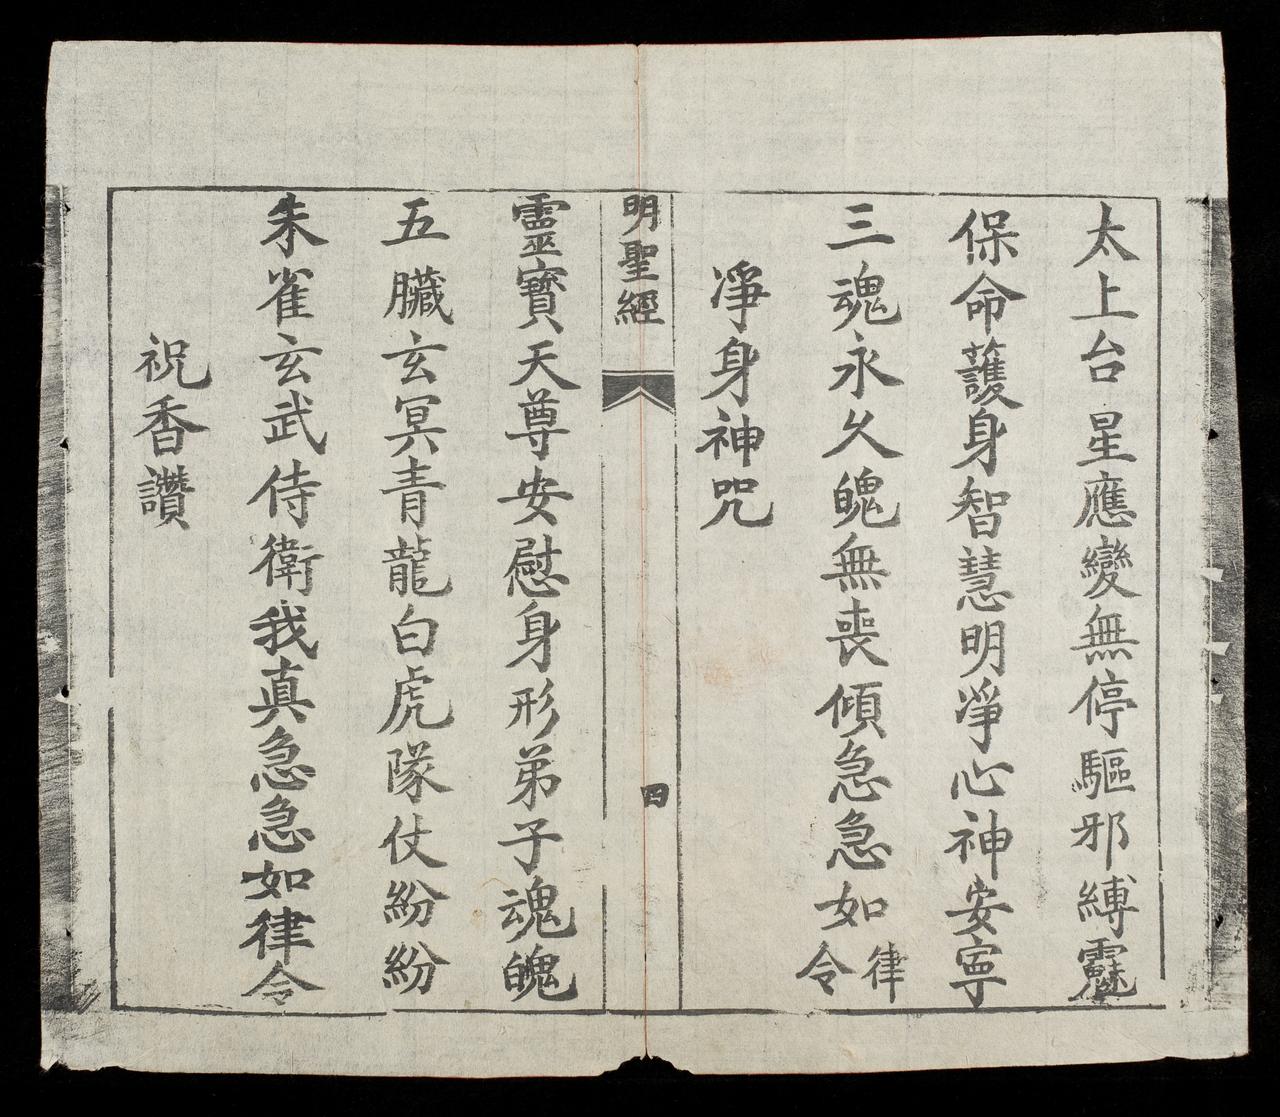 太上台星應變無停驅邪縛魅
保命護身智慧明淨心神安寧
三魂永久魄無丧傾急急如律令
淨身神咒
明聖經
四
靈寶天尊安慰身形弟子魂魄
五臟玄冥青龍白虎隊仗紛紛
朱雀玄武侍衛我真急急如律令
祝香讚